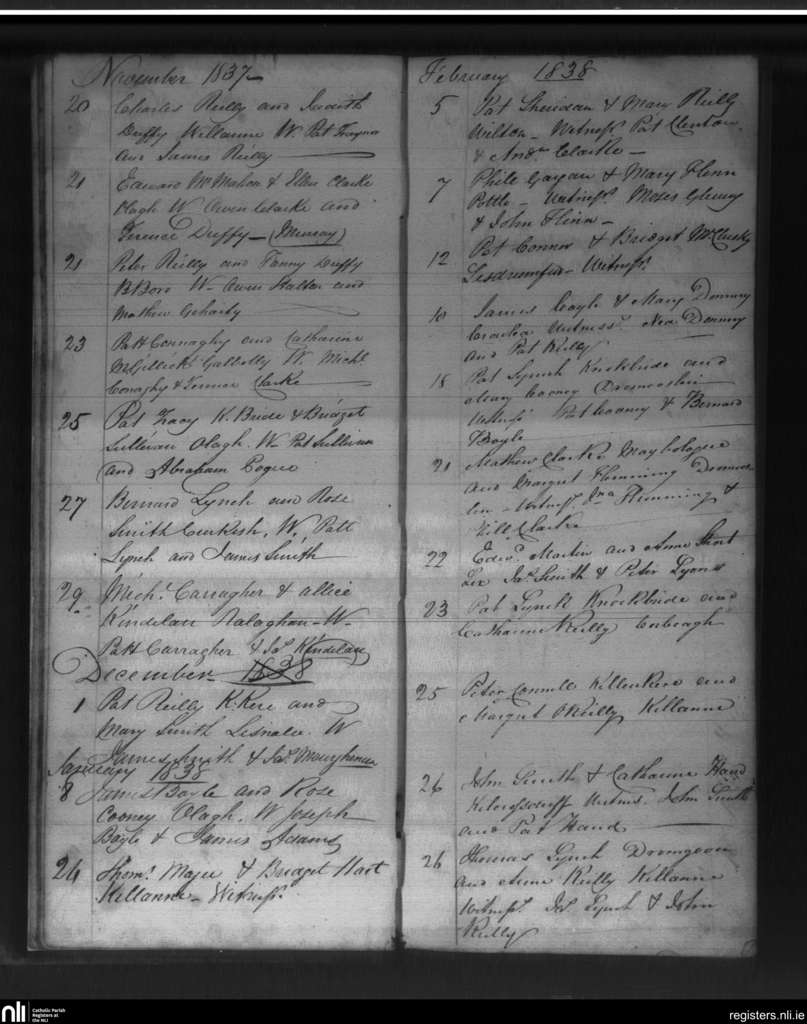 November 1837
20 Charles Reilly and Judith
Duffy Killanne W. Pat Traynor
and James Reilly
21 Edward McMahon & Ellen Clarke
Clagh W Owen Clarke and
Terence Duffy (Murray)
21 Peter Reilly and Fanny Duffy
W Owen and
Mathew
23 Patt Connaghy and Catharine
W. Michl.
Conaghy & Clarke
25 Pat Tracy K. Bride & Bridget
Sullivan Clagh. W. Pat Sullivan
and Abraham Pogue
27 Bernard Lynch and Rose
Smith W, Patt
Lynch and James Smith
29 Michl. Carragher & Allice
Kindelan Ralaghan W
Patt Carragher & Jas. Kindelan
December 1838
1 Pat Reilly K. Kere and
Mary Smith W
James Smith & Jas.
January 1838
8 James Boyle and Rose
Cooney Clagh. W Joseph
Boyle & James Adams
26 Thoms. Magee & Bridget Hart
Killanne Witness.
February 1838
5 Pat Sheridan & Mary Reilly
Wilton Witness. Pat Clinton
& Andw. Clarke
7 Phill Gaynn & Mary Flinn
Pottle Witness. Moses
& John Flinn
12 Pat Connor & Bridget McClusky
Witness.
James Coyle & Mary
Witness.
and Pat Reilly
18 Pat Lynch Knockbride and
Mary Cooney
Witness. Pat Cooney & Bernard
Boyle
21 Mathew Clarke Maybologue
and Margret Flemming
Witness. Flemming &
Clarke
22 Edwd. Martin and Anne Short
Jas. Smith & Peter Lyons
23 Pat Lynch Knockbride and
Catharine Reilly Corbeagh
25 Peter Connell Killinkere and
Margret O'Reilly Killanne
26 John Smith & Catharine Hand
Witness. John Smith
and Pat Hand
26 Thomas Lynch Drumgoon
and Anne Reilly Killanne
Witness. Jas. Lynch & John
Reilly
nli
Catholic Parish
Registers at
the NLI
registers.nli.ie